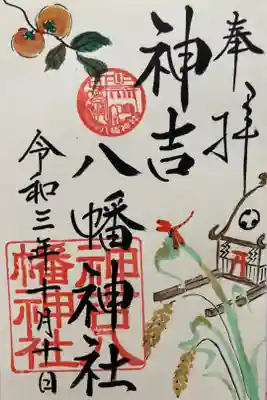 奉拝
神吉八幡神社
令和三年十月十日
神吉八
幡神社